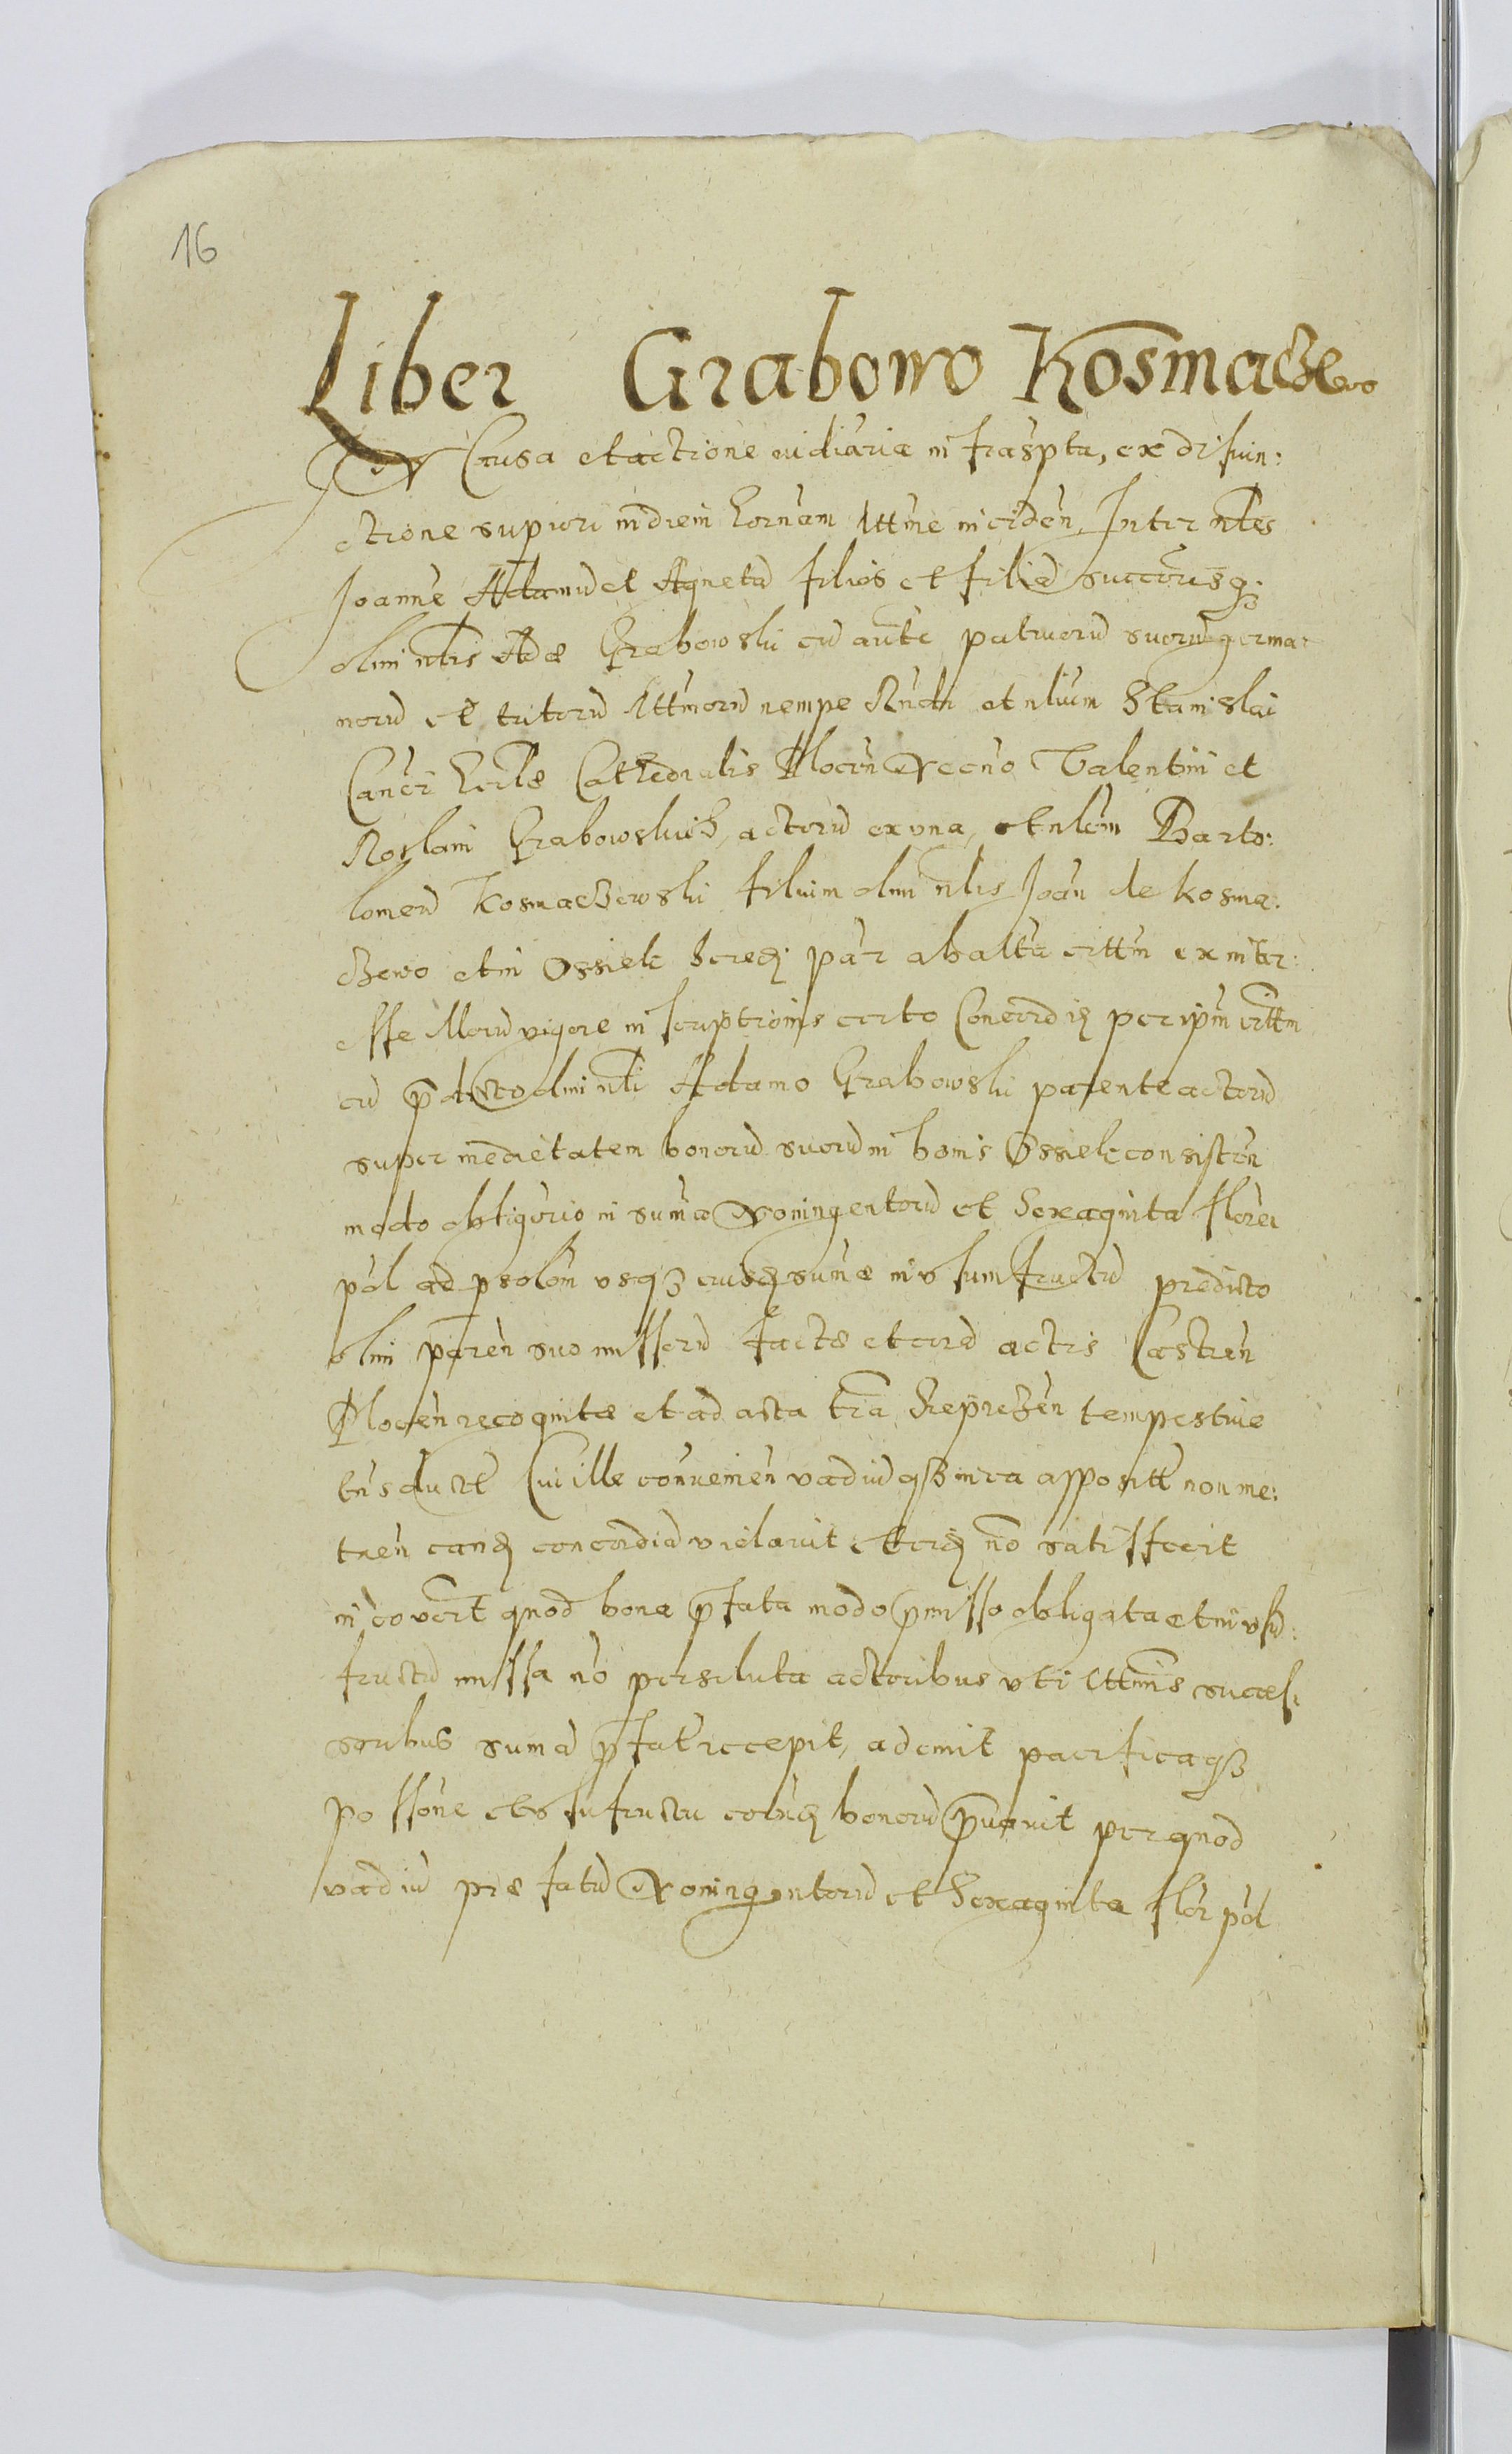 16
Liber Grabowo Kosmaczewo
IN Causa et actione vidiariæ infrasp̃ta, ex disiun:
ctione superiori in diem hornam ittine inciden Inter nles
Joanne Adamu et Agneta filios et filia succoresq;
olim nlis Adæ Grabowski cu aute patruoru suoru germa:
noru et tutoru lttmoru nempe Rndi et nlium Stanislai
Canci Ecclæ Cathedralis Plocen Necno Valentini et
Roslani Grabowskich, actoru ex una, et nlem Barto:
lomeu Kosmaczewski filium olim nlis Joan de Kosma:
czewo et in Ossiek hered; par ab alta cittm ex inter:
esse illoru vigore inscriptionis certo Concordiæ per ipm cittm
cu p̃dicto olim nli Adamo Grabowski parente actoru
super medietatem bonoru suoru in bonis Ossiek consisten
modo obligorio in suma Noningentoru et Sexaginta floren
pol ad p̃solom usq3 eiusd sumæ in usumfructu predicto
olim paren suo missoru factæ et cora actis Castren
Plocen recognitæ et ad acta tra Repræzen tempestive
tnsduct Cui ille convenien vadiuq3 in ea apposittt non me:
tuen eand concordia violavit et eid no satisfecit
in eo vert quod bona p̃fata modo p̃misso obligata et in usu:
fructu missa no persoluta actoribus uti lttimis succes:
soribus suma p̃fat recepit, ademit pacificaq3
possone et usufructu eorund bonoru p̃vavit per quod
vadiu præfatu Noningentoru et Sexaginta flor pol